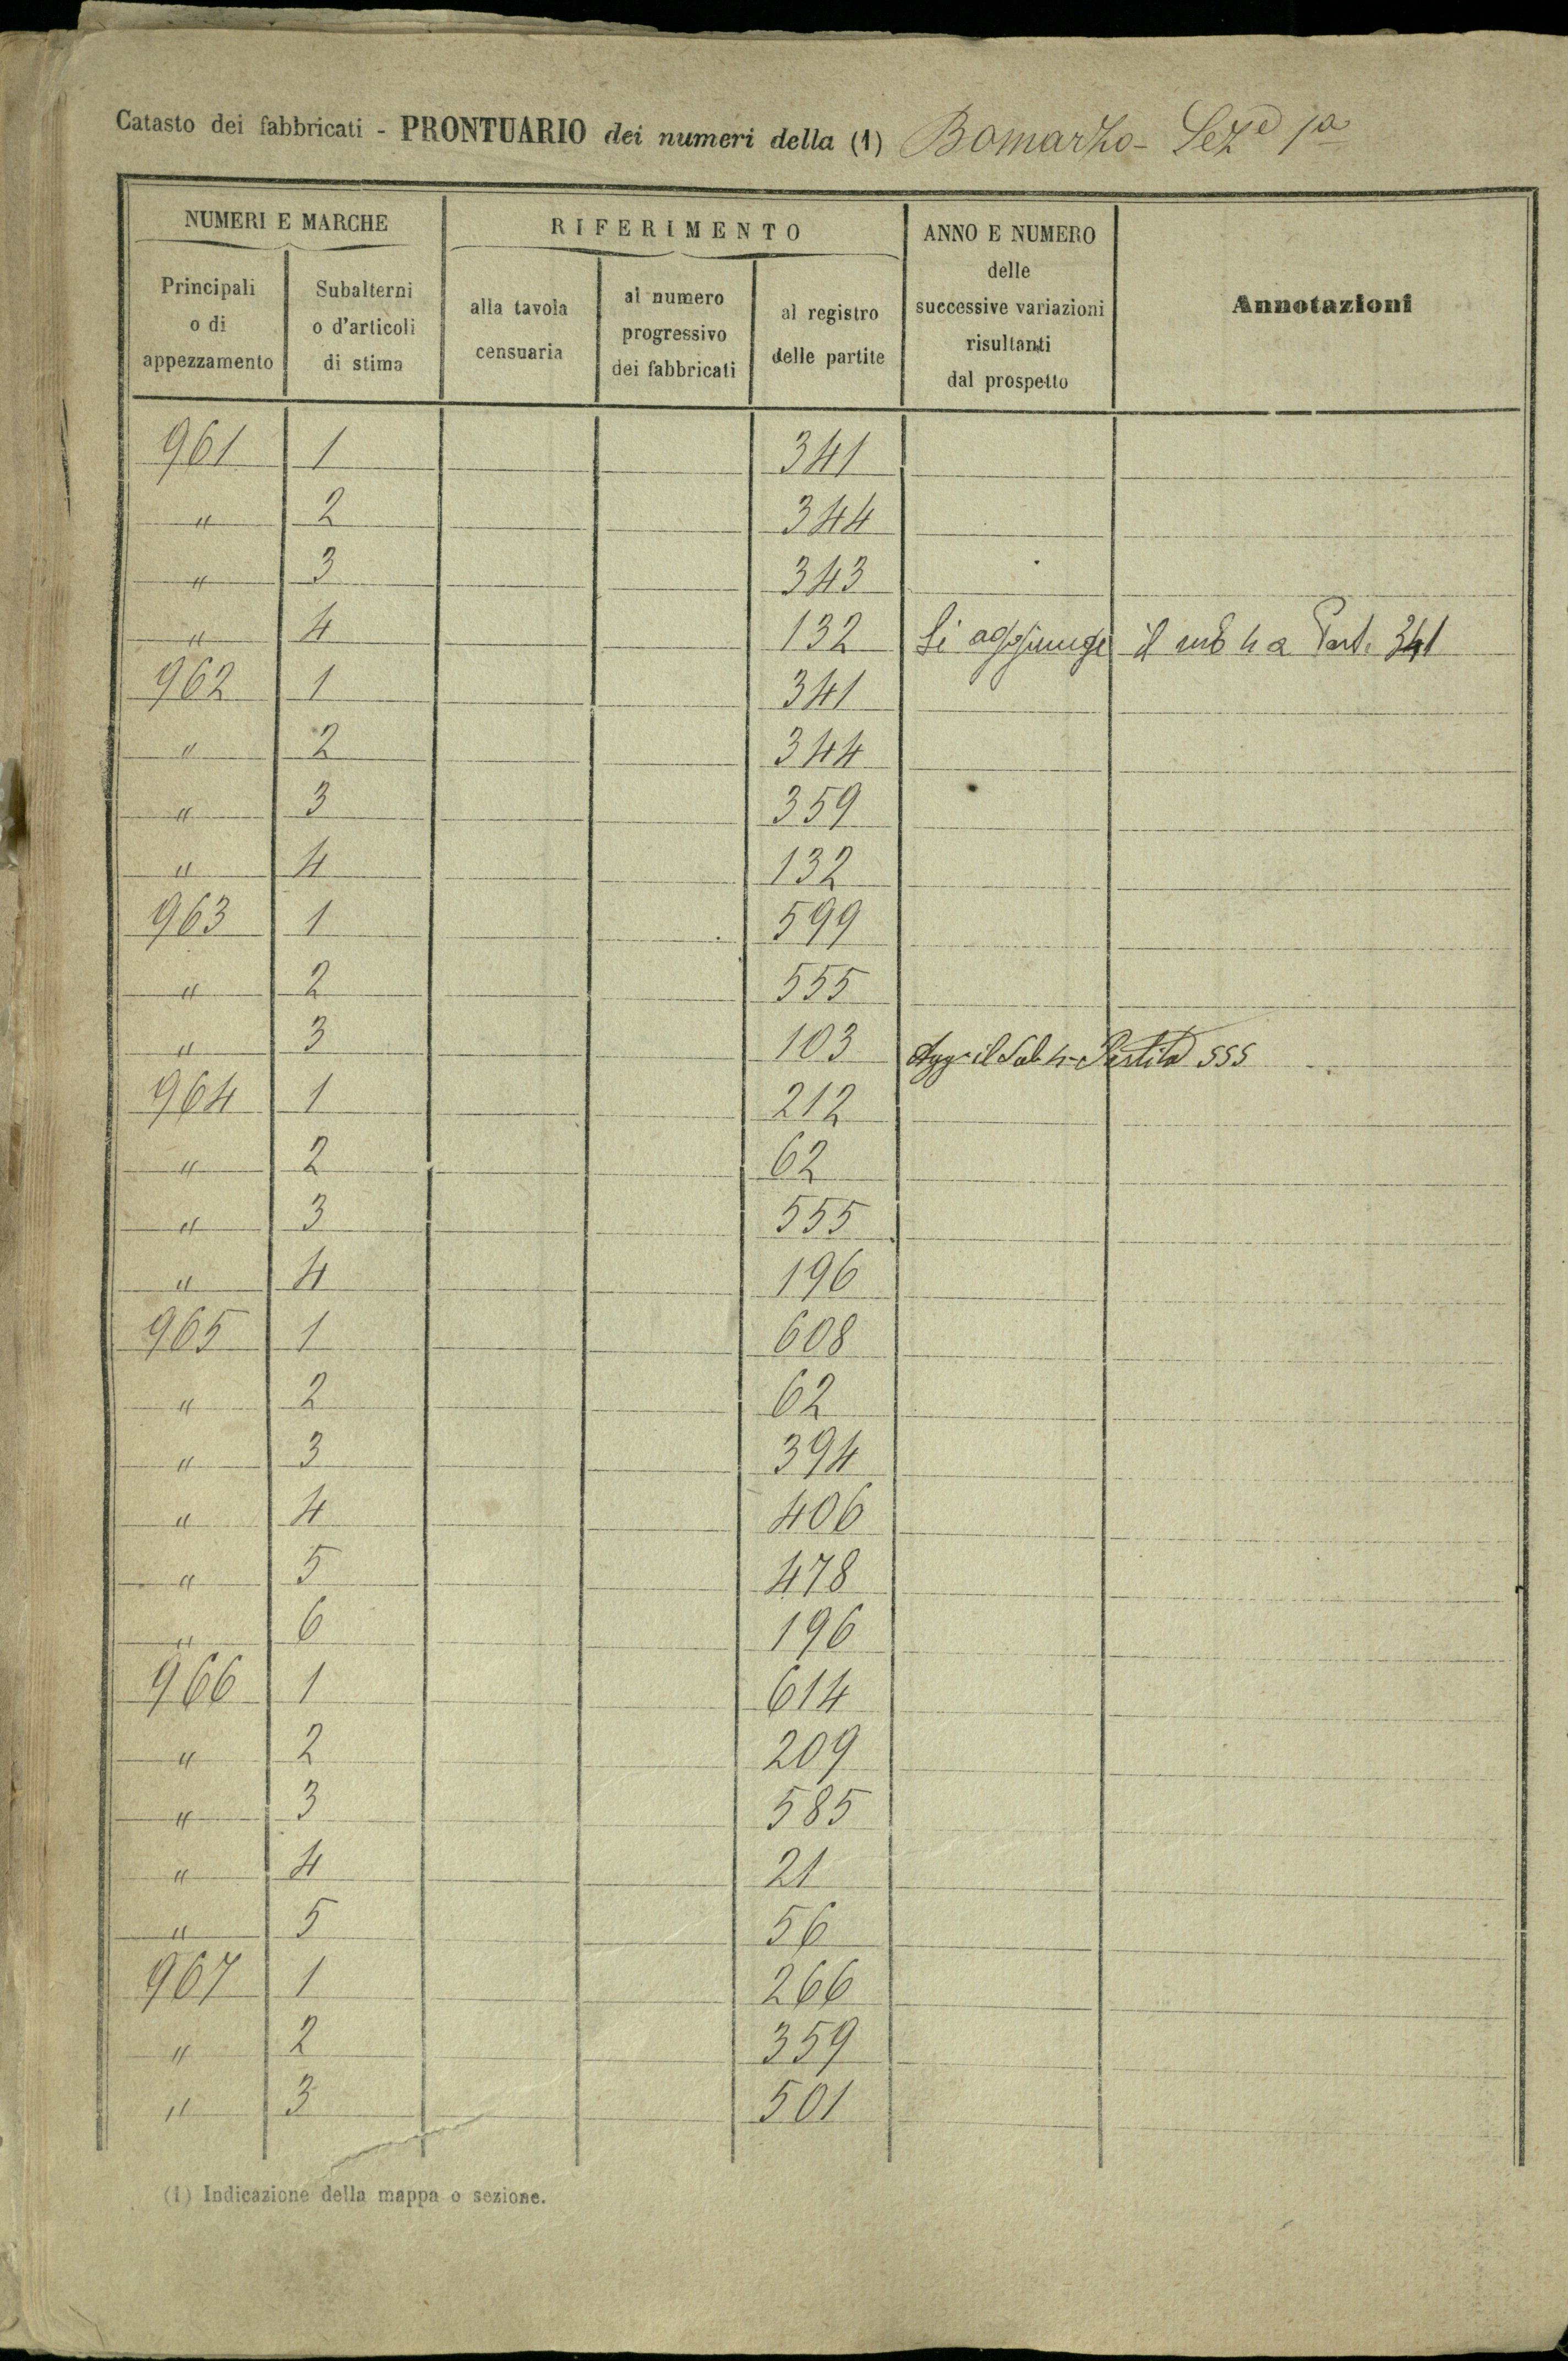 Catasto dei fabbricati - PRONTUARIO dei numeri della (1) Bomarzo - Sez.e 1a
NUMERI E MARCHE
RIFERIMENTO
ANNO E NUMERO delle successive variazioni risultanti dal prospetto
Annotazioni
Principali o di appezzamento
Subalterni o d'articoli di stima
alla tavola censuaria
al numero progressivo dei fabbricati
al registro delle partite
961 1 341
" 2 344
" 3 343
" 4 132 Si aggiunge il sub 4 a Part. 341
962 1 341
" 2 344
" 3 359
" 4 132
963 1 599
" 2 555
" 3 103 Agg. il Sub 4 - Partita 555
964 1 212
" 2 62
" 3 555
" 4 196
965 1 608
" 2 62
" 3 394
" 4 406
" 5 478
" 6 196
966 1 614
" 2 209
" 3 585
" 4 21
" 5 56
967 1 266
" 2 359
" 3 501
(1) Indicazione della mappa o sezione.